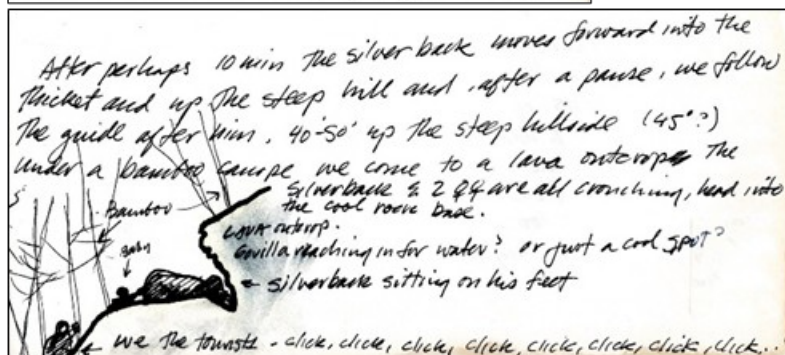 After perhaps 10 min the silverback moves forward into the
thicket and up the steep hill and, after a pause, we follow
the guide after him. 40'-50' up the steep hillside (45°?)
under a bamboo canope we come to a lava outcrop. The
silverback & 2 ♀♀ are all crouching, head into
Bamboo
the cool rock base.
LAVA outcrop.
Baby
Gorilla reaching in for water? or just a cool SPOT?
← silverback sitting on his feet
← we the tourists - click, click, click, click, click, click, click, click...